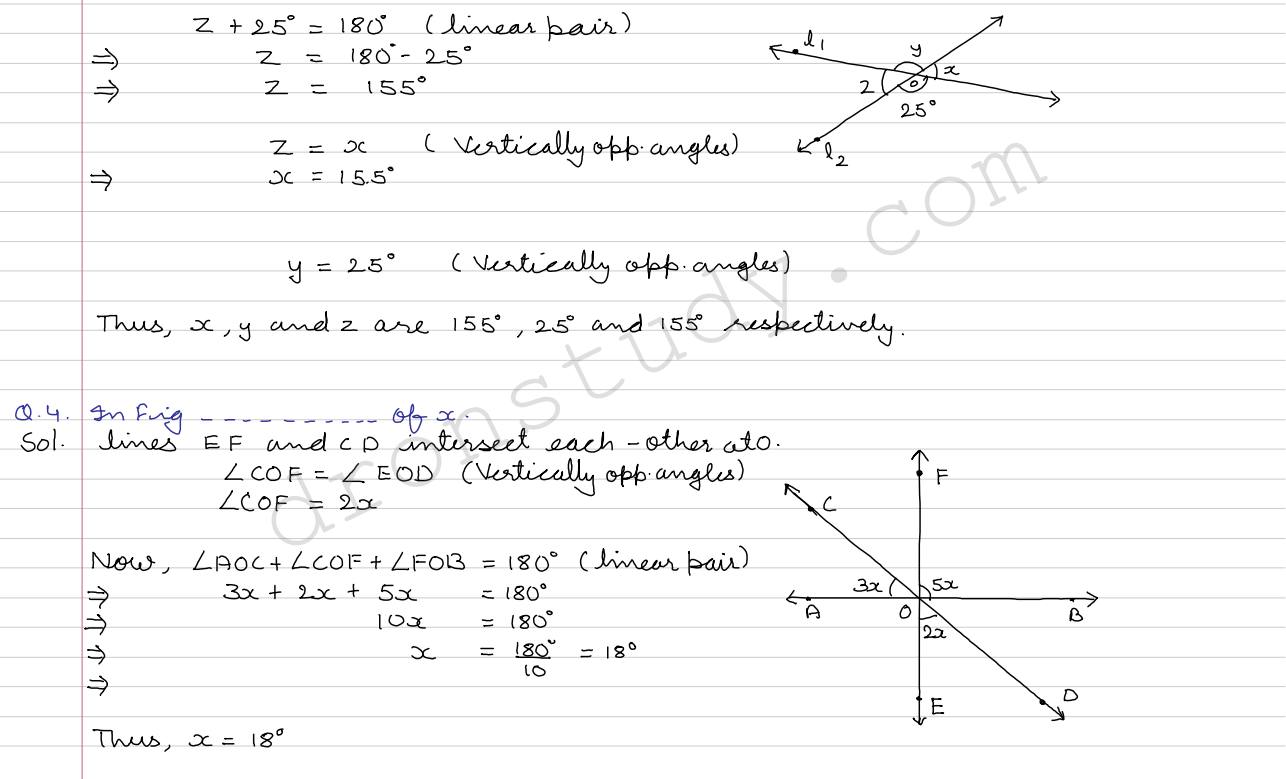 Z + 25° = 180° (linear pair)
⇒ Z = 180° - 25°
⇒ Z = 155°
Z = x ( Vertically opp. angles)
⇒ x = 15.5°
y = 25° (Vertically opp. angles)
Thus, x, y and z are 155°, 25° and 155° respectively.
l1
y
x
Z
O
25°
l2
Q.4. In Fig ----------- of x.
Sol. lines EF and CD intersect each-other at O.
∠COF = ∠EOD (Vertically opp. angles)
∠COF = 2x
Now, ∠AOC + ∠COF + ∠FOB = 180° (linear pair)
⇒ 3x + 2x + 5x = 180°
⇒ 10x = 180°
⇒ x = 180°/10 = 18°
⇒
Thus, x = 18°
F
C
3x
5x
A
O
B
2x
E
D
dronstudy.com